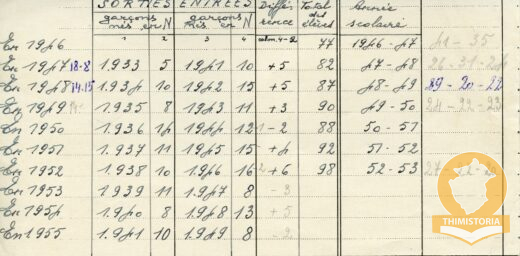 SORTIES ENTRÉES Diffé- Total Année
garçons N garçons N rence des scolaire
nés en nés en élèves
1 2 3 4 colon. 4-2
En 1946 77 1946-47 41-35
En 1947 18-8 1.933 5 1941 10 +5 82 47-48 26-31-24
En 1948 14.15 1.934 10 1942 15 +5 87 48-49 29-20-22
En 1949 1.935 8 1943 11 +3 90 49-50 24-22-23
En 1950 1.936 14 1944 12 -2 88 50-51
En 1951 1.937 11 1945 15 +4 92 51-52
En 1952 1.938 10 1946 16 +6 98 52-53 27
En 1953 1939 11 1.947 8 -3
En 1954 1940 8 1948 13 +5
En 1955 1.941 10 1949 8 -2
THIMISTORIA